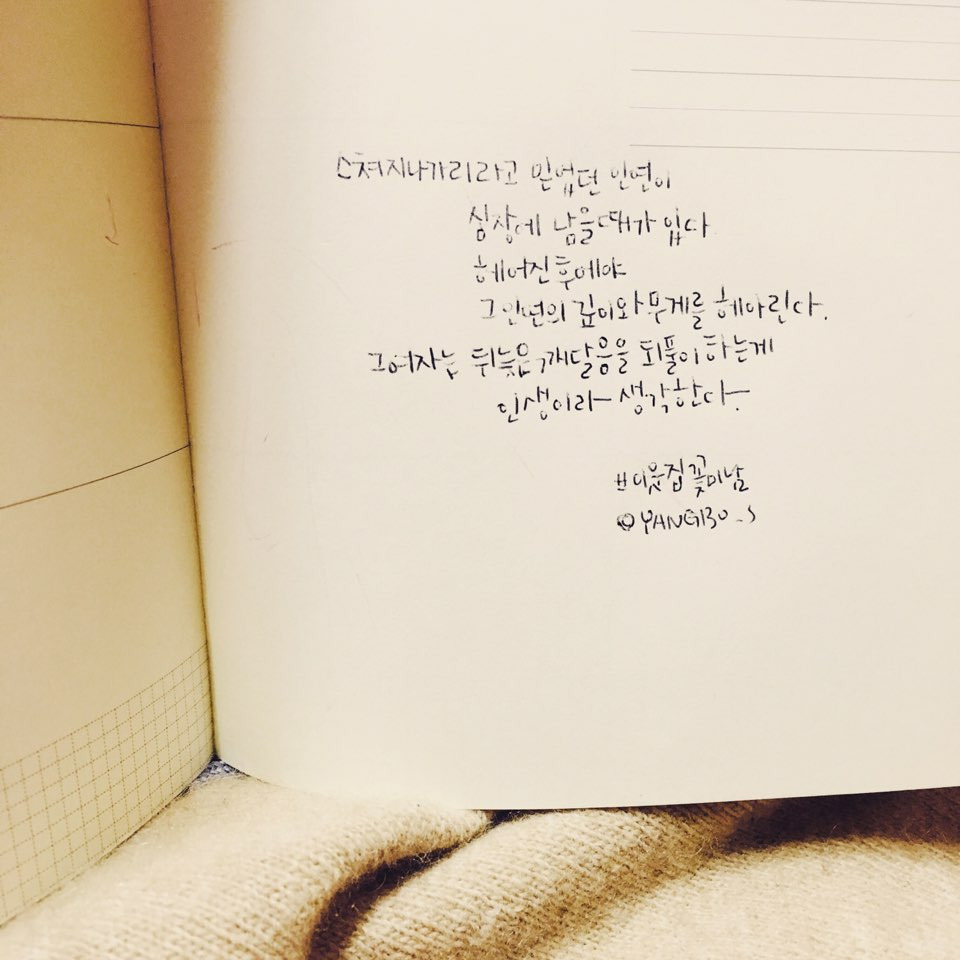 스쳐지나가리라고 믿었던 인연이
심장에 남을때가 있다
헤어진후에야
그인연의 깊이와 무게를 헤아린다.
그여자는 뒤늦은 깨달음을 되풀이하는게
인생이라 생각한다-
#이웃집꽃미남
@YANGBO_S